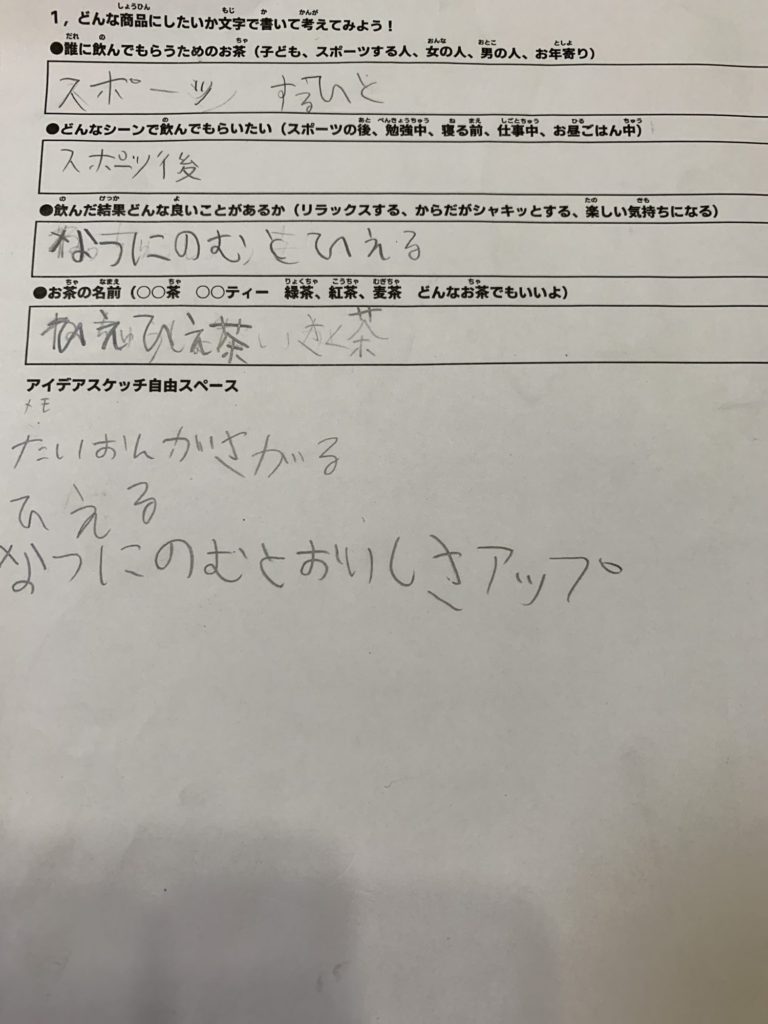 1，どんな商品にしたいか文字で書いて考えてみよう！
●誰に飲んでもらうためのお茶（子ども、スポーツする人、女の人、男の人、お年寄り）
スポーツ するひと
●どんなシーンで飲んでもらいたい（スポーツの後、勉強中、寝る前、仕事中、お昼ごはん中）
スポーツ後
●飲んだ結果どんな良いことがあるか（リラックスする、からだがシャキッとする、楽しい気持ちになる）
なつにのむとひえる
●お茶の名前（○○茶　○○ティー　緑茶、紅茶、麦茶　どんなお茶でもいいよ）
ひえ茶
アイデアスケッチ自由スペース
メモ
たいおんがさがる
ひえる
なつにのむとおいしさアップ